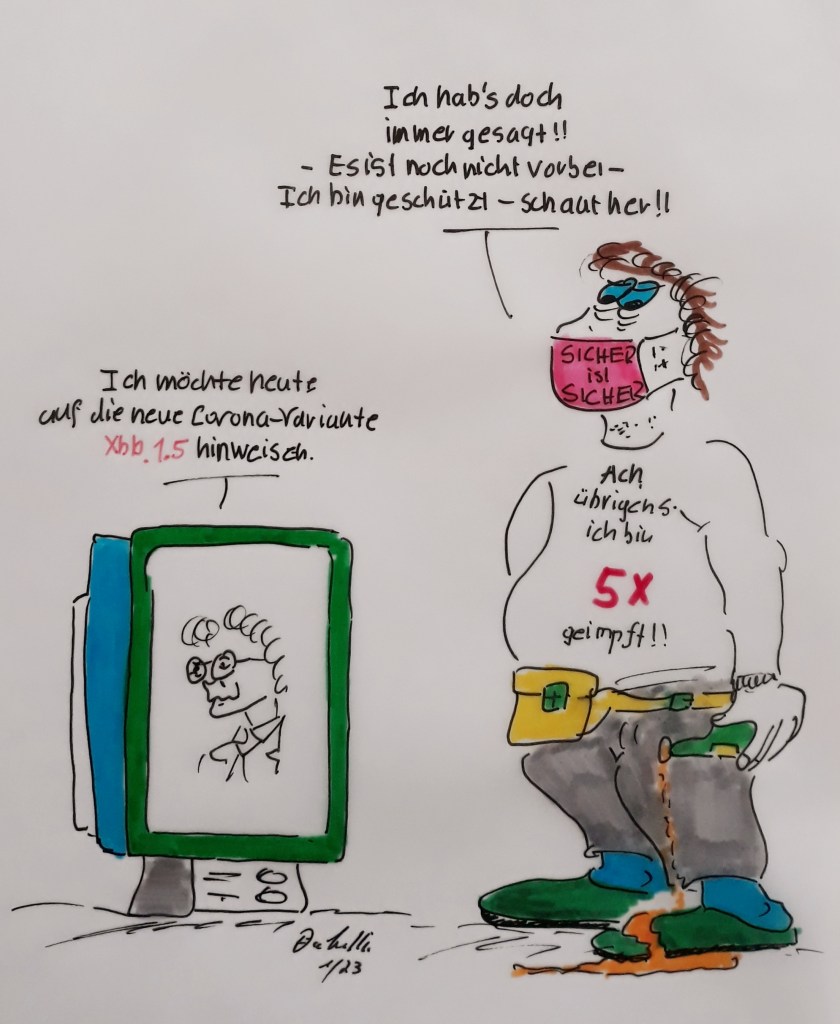 Ich hab's doch
immer gesagt!!
- Es ist noch nicht vorbei -
Ich bin geschützt - schaut her!!
SICHER
ist
SICHER
Ich möchte heute
auf die neue Corona-Variante
Xbb.1.5 hinweisen.
Ach
übrigens.
ich bin
5x
geimpft!!
1/23